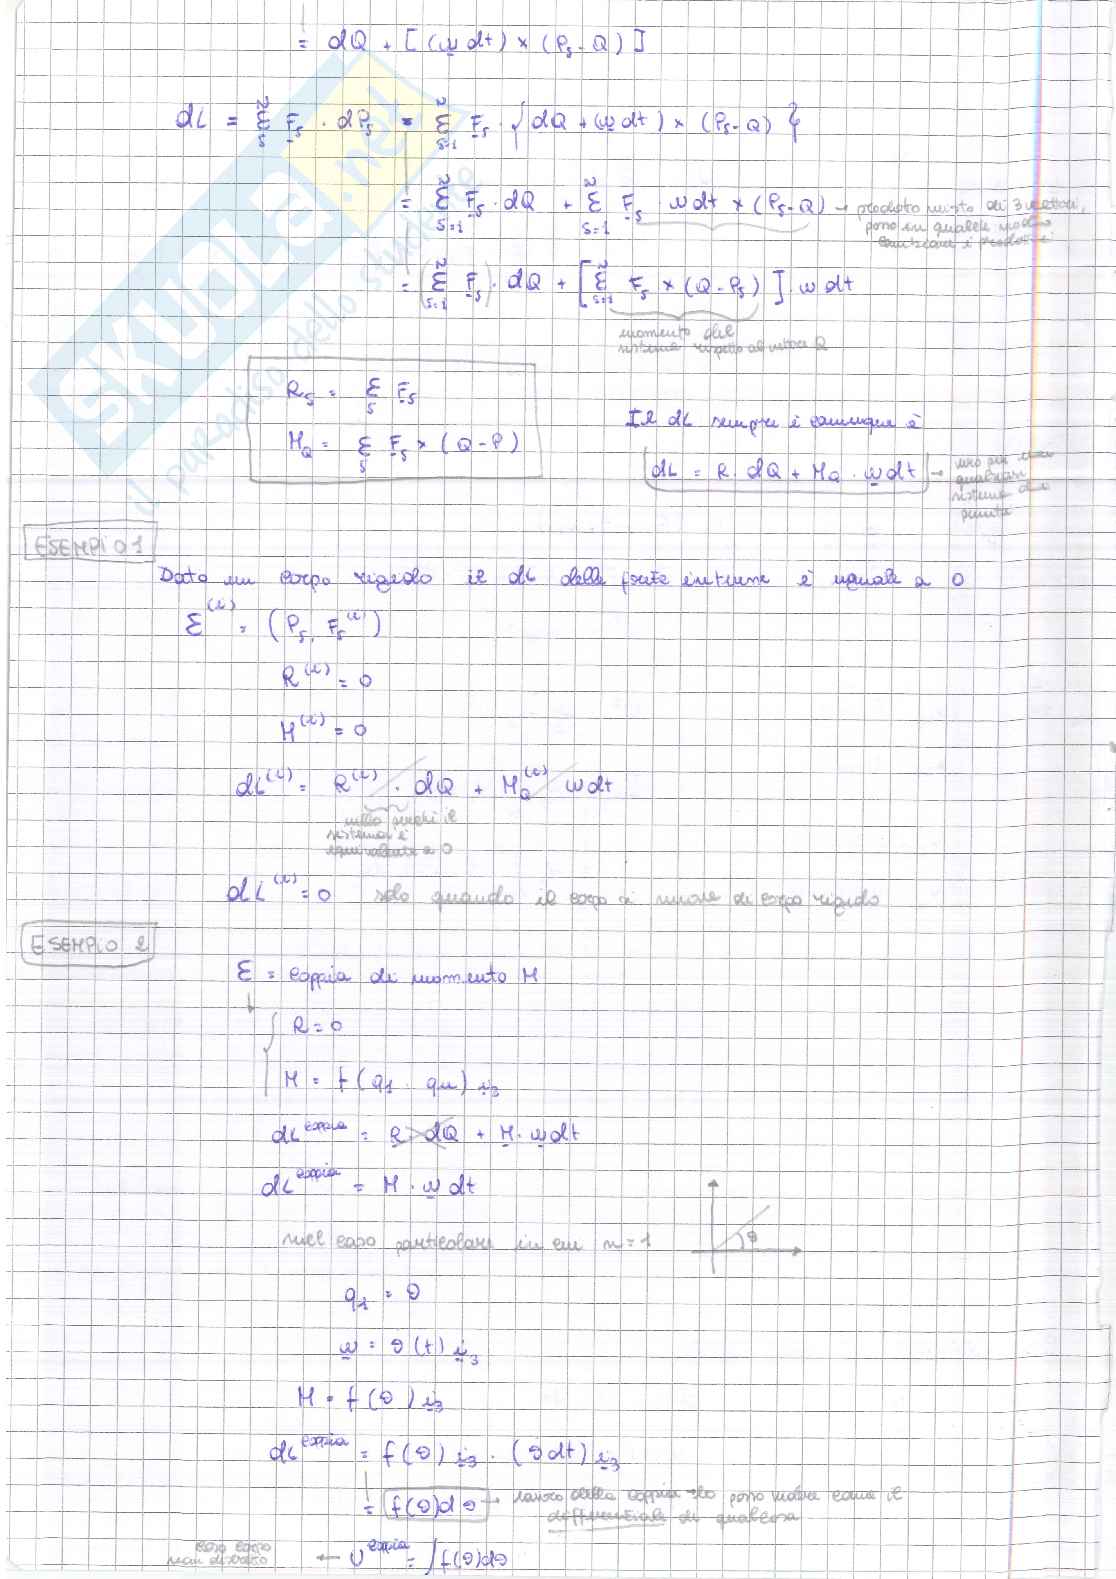 = dQ + [ (ω dt) × (Ps - Q) ]
dL = Σ Fs · dPs = Σ Fs · { dQ + (ω dt) × (Ps-Q) }
= Σ Fs · dQ + Σ Fs · ω dt × (Ps-Q) → prodotto misto di 3 vettori,
posso in qualche modo
cambiare i prodotti
= (Σ Fs) · dQ + [ Σ Fs × (Q-Ps) ] · ω dt
momento del
sistema rispetto al vettore Q
Rs = Σ Fs
MQ = Σ Fs × (Q-P)
Il dL sempre e comunque è
dL = R · dQ + MQ · ω dt →
qualsiasi
sistema di
punti
ESEMPIO 1
Dato un corpo rigido il dL delle forze interne è uguale a 0
Σ(i) = (Ps, Fs(i))
R(i) = 0
M(i) = 0
dL(i) = R(i) · dQ + MQ(i) ω dt
nullo perché il
sistema è
equivalente a 0
dL(i) = 0 solo quando il corpo si muove di corpo rigido
ESEMPIO 2
Σ = coppia di momento M
R = 0
M = f(q1 . qn) i3
dL coppia = R dQ + M · ω dt
dL coppia = M · ω dt
nel caso particolare in cui n=1
θ
q1 = θ
ω = θ(t) i3
M = f(θ) i3
dL coppia = f(θ) i3 · (θ dt) i3
= f(θ)dθ → lavoro della coppia lo posso vedere come il
differenziale di qualcosa
← U coppia = ∫ f(θ)dθ
SKUOLA.net
il paradiso dello studente